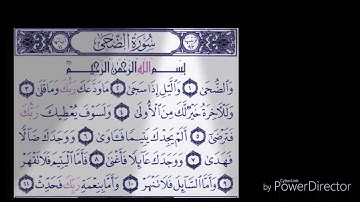 سُورَةُ الضُّحَىٰ
بِسْمِ اللَّهِ الرَّحْمَٰنِ الرَّحِيمِ
وَالضُّحَىٰ ١ وَاللَّيْلِ إِذَا سَجَىٰ ٢ مَا وَدَّعَكَ رَبُّكَ وَمَا قَلَىٰ ٣
وَلَلْآخِرَةُ خَيْرٌ لَكَ مِنَ الْأُولَىٰ ٤ وَلَسَوْفَ يُعْطِيكَ رَبُّكَ
فَتَرْضَىٰ ٥ أَلَمْ يَجِدْكَ يَتِيمًا فَآوَىٰ ٦ وَوَجَدَكَ ضَالًّا
فَهَدَىٰ ٧ وَوَجَدَكَ عَائِلًا فَأَغْنَىٰ ٨ فَأَمَّا الْيَتِيمَ فَلَا تَقْهَرْ
٩ وَأَمَّا السَّائِلَ فَلَا تَنْهَرْ ١٠ وَأَمَّا بِنِعْمَةِ رَبِّكَ فَحَدِّثْ ١١
CyberLink
by PowerDirector